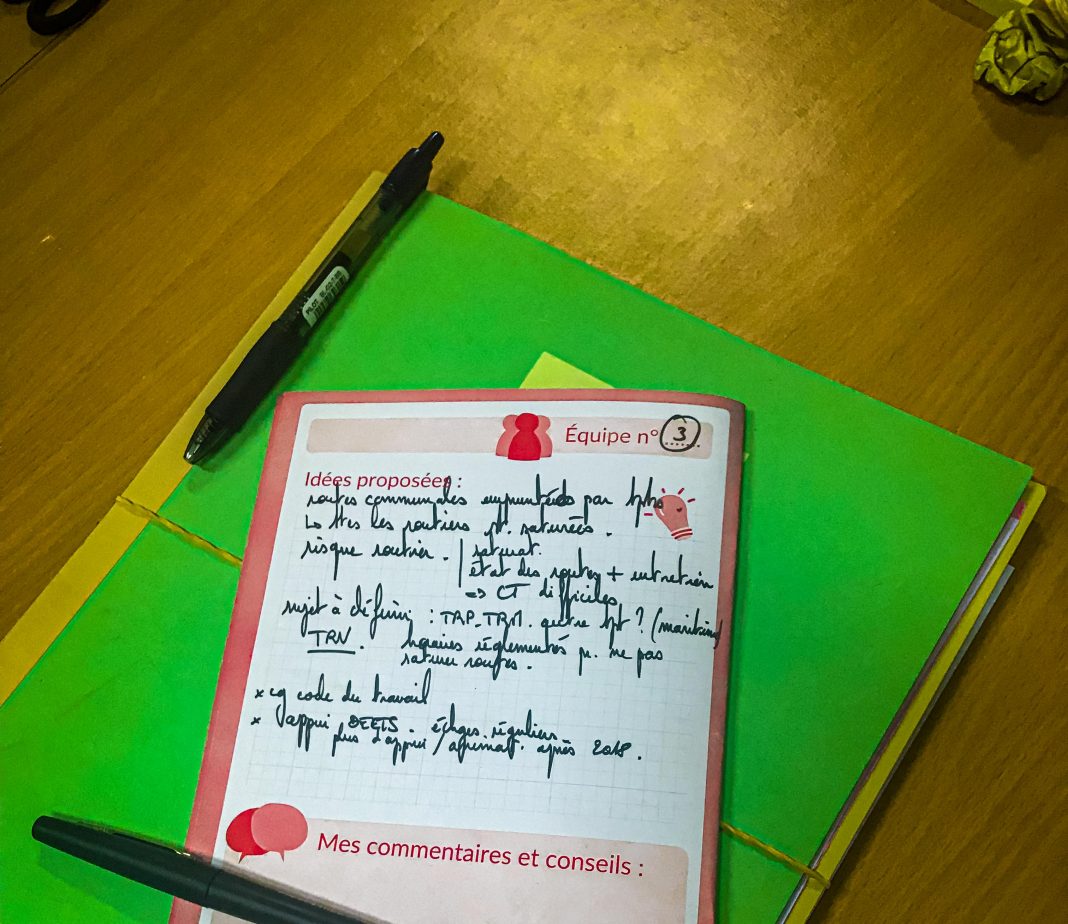 PILOT
Équipe n° 3
Idées proposées :
routes communales empruntées par tpts
ts les routiers pt. saturées.
risque routier. | saturat.
état des routes + entretien
=> CT difficiles
sujet à définir : TRP-TRM. autre tpt ? (maritime)
TRN. horaires réglementés pr. ne pas
saturer routes.
x cg code du travail
x appui DEETS. échges réguliers
plus d'appui / après 2018.
Mes commentaires et conseils :